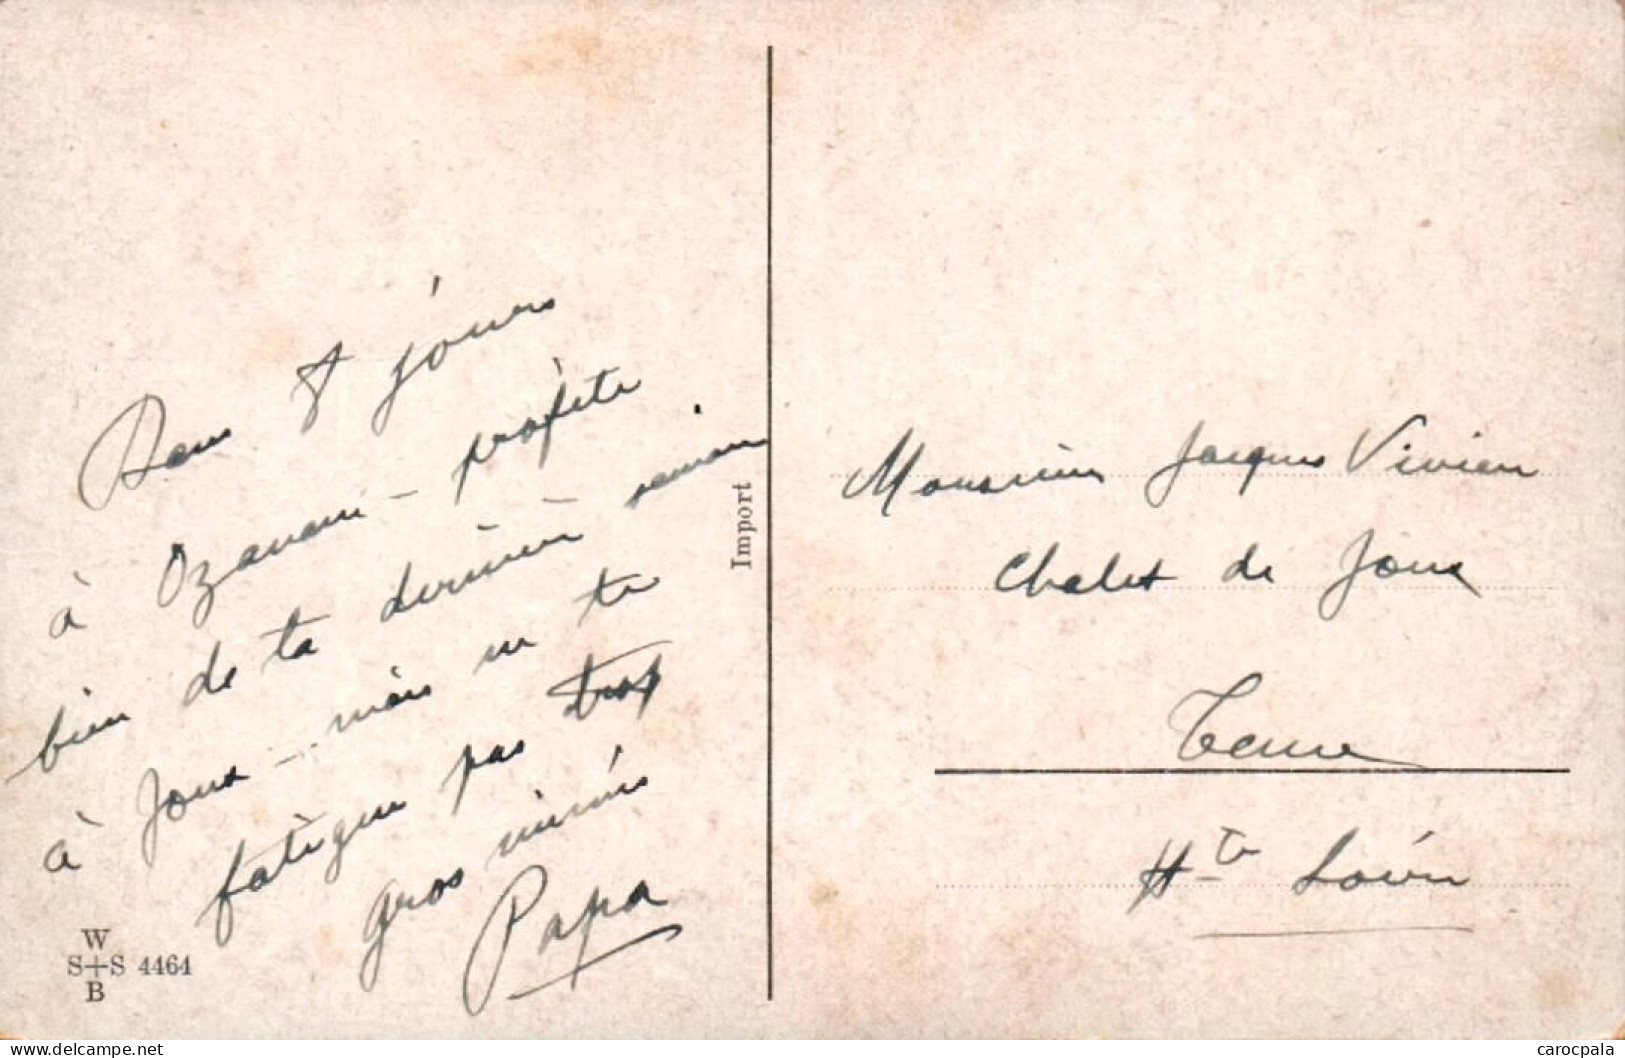 Dans 8 jours
à Ozanam - profite
bien de ta dernière semaine
à Joux - mais ne te
fatigue pas trop
gros mimis
Papa
W
S+S 4464
B
Import
Monsieur Jacques Vivien
Chalet de Joux
Tence
Hte Loire
www.delcampe.net
carocpala